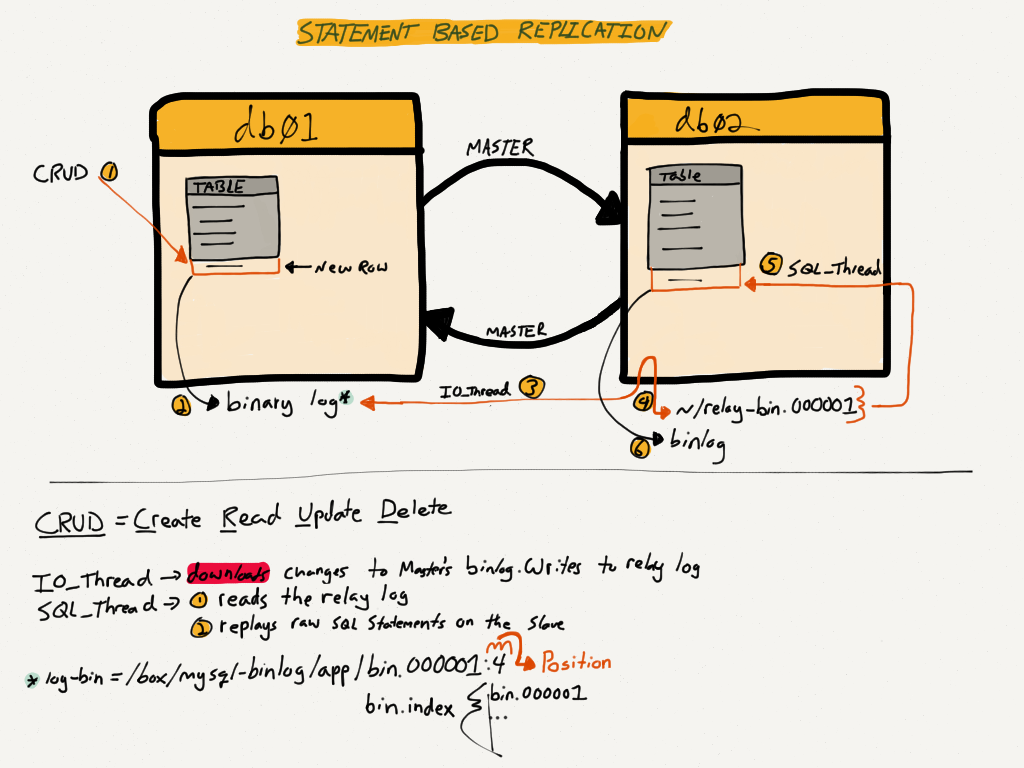 STATEMENT BASED REPLICATION
db01
db02
MASTER
CRUD 1
TABLE
Table
← New Row
5 SQL_Thread
MASTER
2 binary log*
IO_Thread 3
4 ~/relay-bin.000001}
6 binlog
CRUD = Create Read Update Delete
IO_Thread → downloads changes to Master's binlog. Writes to relay log
SQL_Thread → 1 reads the relay log
2 replays raw SQL Statements on the Slave
* log-bin = /box/mysql-binlog/app/bin.000001:4 → Position
bin.index { bin.000001
...